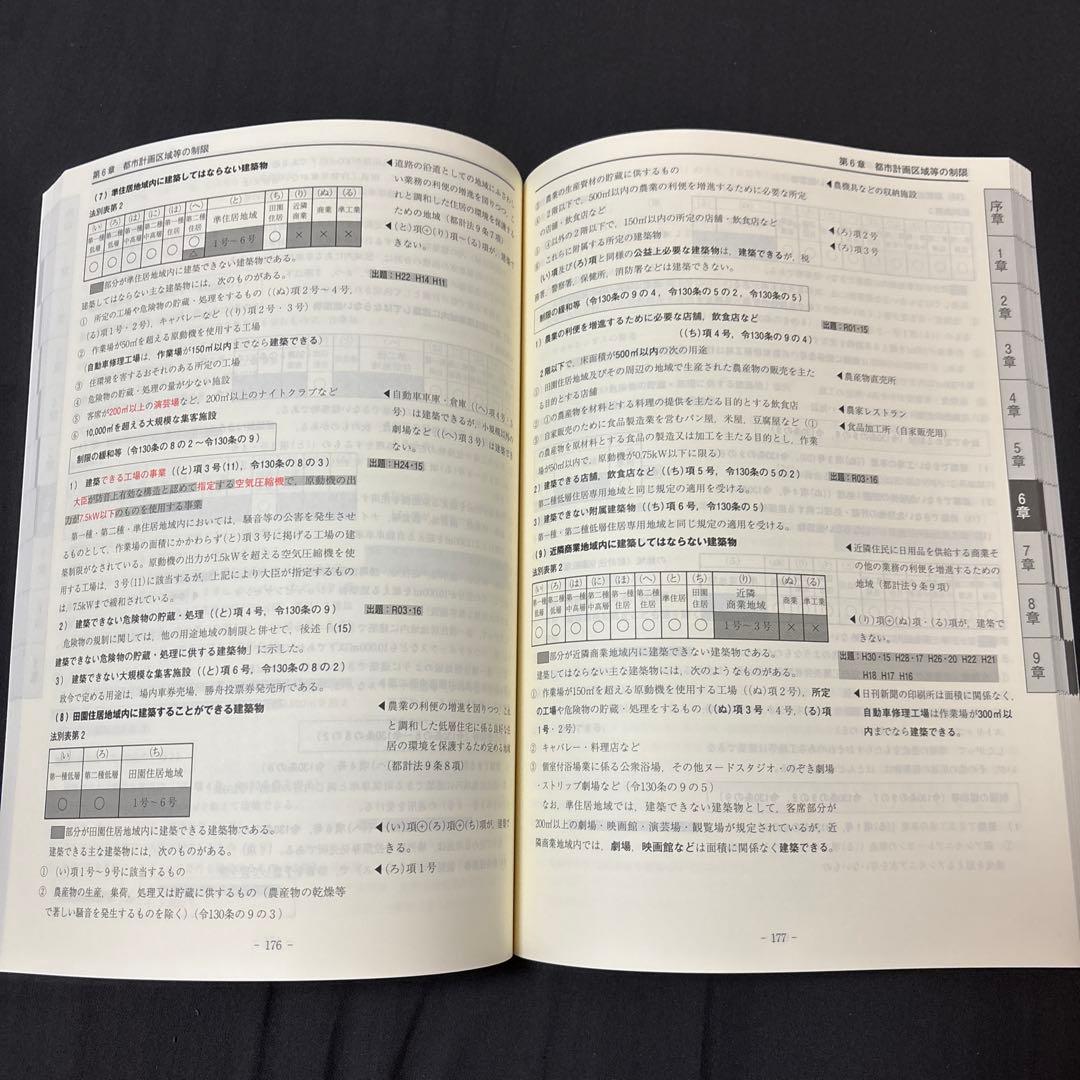 第6章 都市計画区域等の制限
(7)準住居地域内に建築してはならない建築物
法別表第2
(い) (ろ) (は) (に) (ほ) (へ) (と) (ち) (り) (ぬ) (る)
第一種低層 第二種低層 第一種中高層 第二種中高層 第一種住居 第二種住居 準住居地域 田園住居 近隣商業 商業 準工業
○ ○ ○ ○ ○ ○ △ 1号~6号 ○ × × ×
部分が準住居地域内に建築できない建築物である。
建築してはならない主な建築物には,次のものがある。
① 所定の工場や危険物の貯蔵・処理をするもの((ぬ)項2号~4号,
(る)項1号・2号),キャバレーなど((り)項2号・3号)
② 作業場が50㎡を超える原動機を使用する工場
(自動車修理工場は,作業場が150㎡以内までなら建築できる)
③ 住環境を害するおそれのある所定の工場
④ 危険物の貯蔵・処理の量が少ない施設
⑤ 客席が200㎡以上の演芸場など,200㎡以上のナイトクラブなど
⑥ 10,000㎡を超える大規模な集客施設
制限の緩和等(令130条の8の2~令130条の9)
1) 建築できる工場の事業((と)項3号(11),令130条の8の3)
大臣が防音上有効な構造と認めて指定する空気圧縮機で,原動機の出
力が7.5kW以下のものを使用する事業
第一種・準住居地域内においては,騒音等の公害を発生させ
るものとして,作業場の面積にかかわらず(と)項3号に掲げる工場の建
築制限がなされている。原動機の出力が1.5kWを超える空気圧縮機を使
用する工場は,3号(11)に該当するが,上記により大臣が指定するもの
は,7.5kWまで緩和されている。
2) 建築できない危険物の貯蔵・処理((と)項4号,令130条の9)
危険物の規制に関しては,他の用途地域の制限と併せて,後述「(15)
建築できない危険物の貯蔵・処理に供する建築物」に示した。
3) 建築できない大規模な集客施設((と)項6号,令130条の8の2)
政令で定める用途は,場内車券売場,勝舟投票券発売所である。
(8)田園住居地域内に建築することができる建築物
法別表第2
(い) (ろ) (ち)
第一種低層 第二種低層 田園住居地域
○ ○ 1号~6号
部分が田園住居地域内に建築できる建築物である。
建築できる主な建築物には,次のものがある。
①(い)項1号~9号に該当するもの
② 農産物の生産,集荷,処理又は貯蔵に供するもの(農産物の乾燥等
で著しい騒音を発生するものを除く)(令130条の9の3)
◀道路の沿道としての地域にふさわし
い業務の利便の増進を図りつつ,こ
れと調和した住居の環境を保護する
ための地域(都計法9条7項)
◀(と)項⊕(り)項~(る)項が,建築で
きない。
出題:H22 H14 H11
◀自動車車庫・倉庫((へ)項4号・5
号)は建築できるが,小規模以外の
劇場など((へ)項3号)は建築でき
ない。
出題:H24・15
出題:R03・16
◀農業の利便の増進を図りつつ,これ
と調和した低層住宅に係る良好な住
居の環境を保護するため定める地域
(都計法9条8項)
◀(い)項⊕(ろ)項⊕(ち)項が,建築で
きる。
◀(ろ)項1号
- 176 -
第6章 都市計画区域等の制限
③ 農業の生産資材の貯蔵に供するもの
④ 2階以下で,500㎡以内の農業の利便を増進するために必要な所定
の店舗・飲食店など
⑤ ④以外の2階以下で,150㎡以内の所定の店舗・飲食店など
⑥ これらに附属する所定の建築物
(い)項及び(ろ)項と同様の公益上必要な建築物は,建築できるが,税
務署,警察署,保健所,消防署などは建築できない。
制限の緩和等(令130条の9の4,令130条の5の2,令130条の5)
1)農業の利便を増進するために必要な店舗,飲食店など
((ち)項4号,令130条の9の4)
2階以下で,床面積が500㎡以内の次の用途
① 田園住居地域及びその周辺の地域で生産された農産物の販売を主た
る目的とする店舗
② ①の農産物を材料とする料理の提供を主たる目的とする飲食店
③ 自家販売のために食品製造業を営むパン屋,米屋,豆腐屋など(①
の農産物を原材料とする食品の製造又は加工を主たる目的とし,作業
場が50㎡以内で,原動機が0.75kW以下に限る)
2)建築できる店舗,飲食店など((ち)項5号,令130条の5の2)
第二種低層住居専用地域と同じ規定の適用を受ける。
3)建築できない附属建築物((ち)項6号,令130条の5)
第一種・第二種低層住居専用地域と同じ規定の適用を受ける。
(9)近隣商業地域内に建築してはならない建築物
法別表第2
(い) (ろ) (は) (に) (ほ) (へ) (と) (ち) (り) (ぬ) (る)
第一種低層 第二種低層 第一種中高層 第二種中高層 第一種住居 第二種住居 準住居 田園住居 近隣商業地域 商業 準工業
○ ○ ○ ○ ○ ○ ○ ○ 1号~3号 × ×
部分が近隣商業地域内に建築できない建築物である。
建築してはならない主な建築物には,次のようなものがある。
① 作業場が150㎡を超える原動機を使用する工場((ぬ)項2号),所定
の工場や危険物の貯蔵・処理をするもの((ぬ)項3号・4号,(る)項
1号・2号)
② キャバレー・料理店など
③ 個室付浴場業に係る公衆浴場,その他ヌードスタジオ・のぞき劇場
・ストリップ劇場など(令130条の9の5)
なお,準住居地域では,建築できない建築物として,客席部分が
200㎡以上の劇場・映画館・演芸場・観覧場が規定されているが,近
隣商業地域内では,劇場,映画館などは面積に関係なく建築できる。
◀農機具などの収納施設
◀(ろ)項2号
◀(ろ)項3号
出題:R01・15
◀農産物直売所
◀農家レストラン
◀食品加工所(自家販売用)
出題:R03・16
◀近隣住民に日用品を供給する商業そ
の他の業務の利便を増進するための
地域(都計法9条9項)
◀(り)項⊕(ぬ)項・(る)項が,建築で
きない。
出題:H30・15 H28・17 H26・20 H22 H21
H18 H17 H16
◀日刊新聞の印刷所は面積に関係なく,
自動車修理工場は作業場が300㎡以
内までなら建築できる。
- 177 -
序章
1章
2章
3章
4章
5章
6章
7章
8章
9章